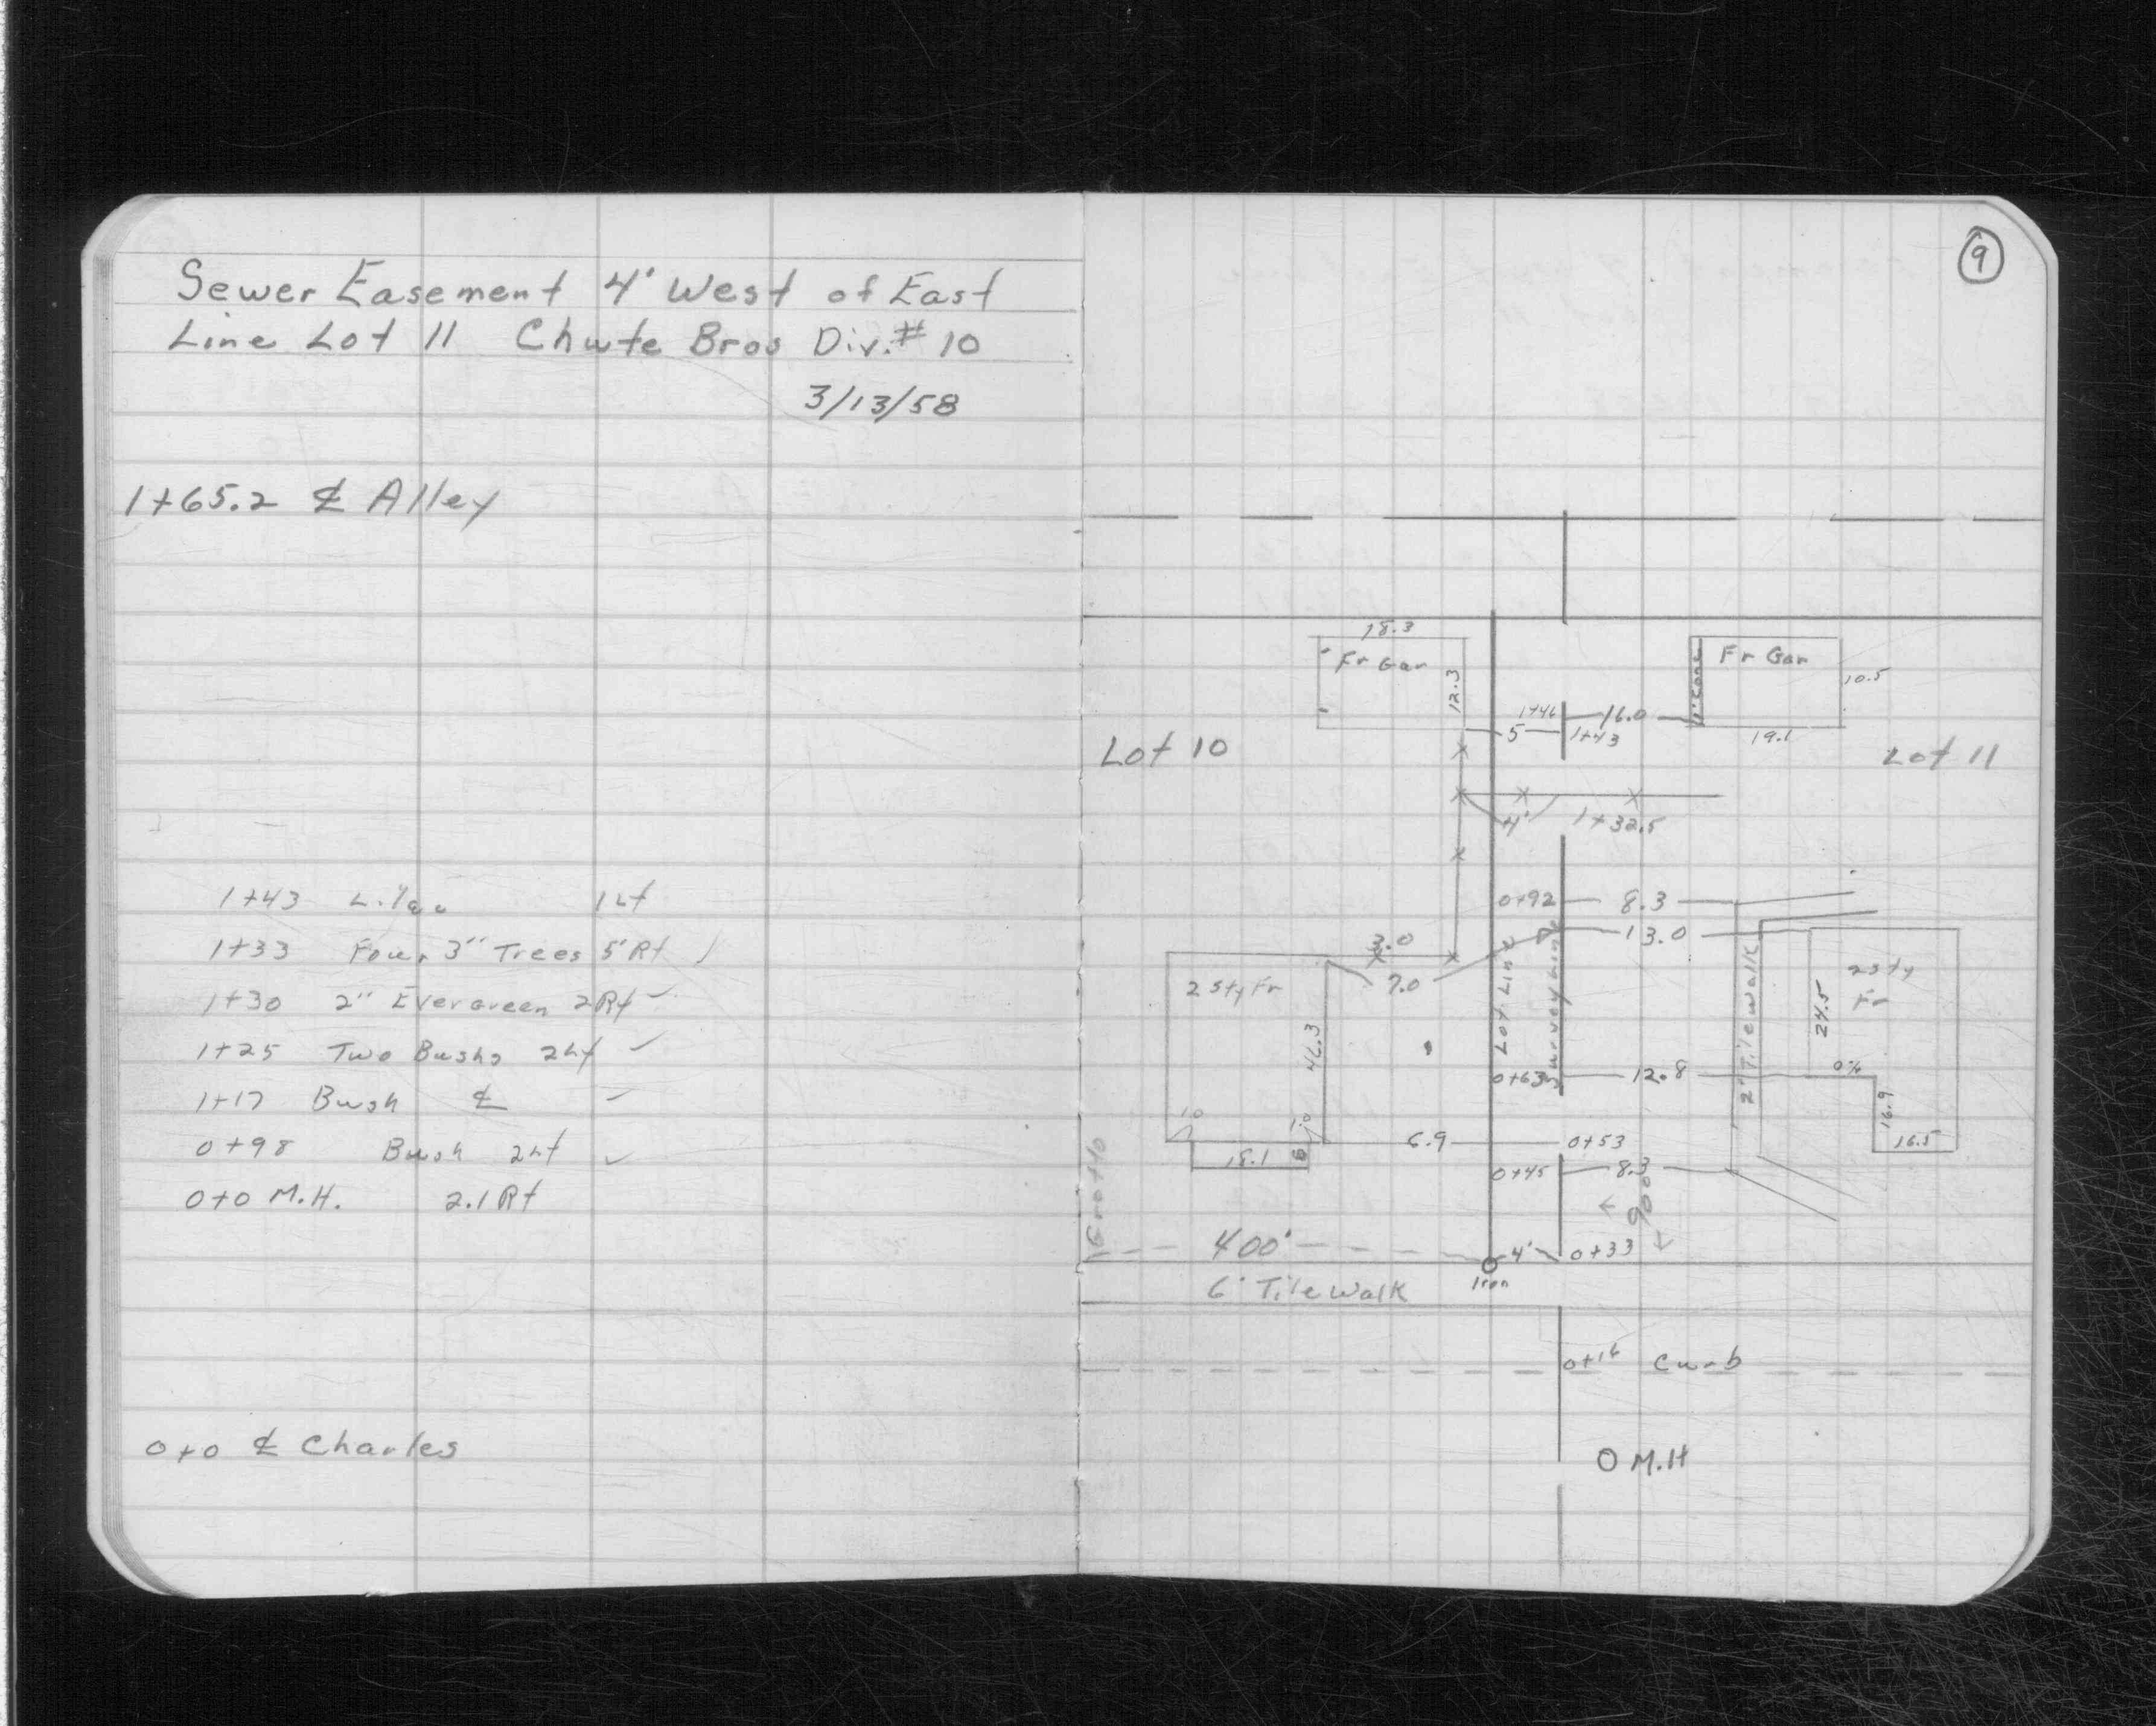 Sewer Easement 4' West of East
Line Lot 11 Chute Bros Div. # 10
3/13/58
1+65.2 ℄ Alley
1+43 Lilac 1 Lt
1+33 Four 3" Trees 5' Rt
1+30 2" Evergreen 2 Rt
1+25 Two Bushs 2 Lt
1+17 Bush ℄
0+98 Bush 2 Lt
0+0 M.H. 2.1 Rt
0+0 ℄ Charles
9
18.3
Fr Gar
12.3
1' Conc
Fr Gar
10.5
19.1
1+46
16.0
5
1+43
Lot 10
Lot 11
4'
1+32.5
0+92
8.3
13.0
3.0
7.0
2 Sty Fr
46.3
Lot Line
Survey Line
2' Tile Walk
2 Sty
Fr
24.5
0+63
12.8
16.9
16.5
1.0
1.0
18.1
6.9
0+53
0+45
8.3
90°
Grotto
400'
4'
0+33
Iron
6' Tile Walk
0+16 Curb
M.H